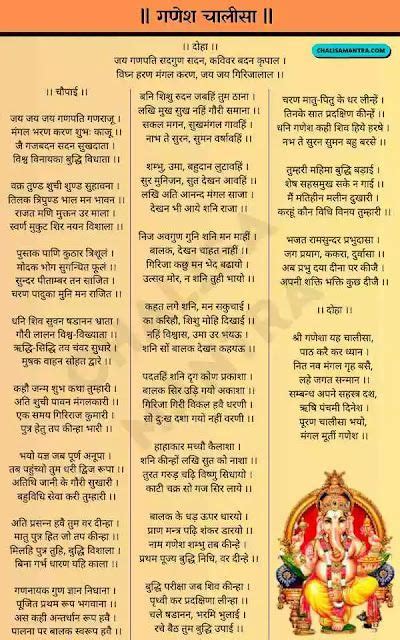 ॥ गणेश चालीसा ॥
CHALISAMANTRA.COM
।। दोहा ।।
जय गणपति सदगुण सदन, कविवर बदन कृपाल ।
विघ्न हरण मंगल करण, जय जय गिरिजालाल ।।
।। चौपाई ।।
जय जय जय गणपति गणराजू ।
मंगल भरण करण शुभः काजू ।।
जै गजबदन सदन सुखदाता ।
विश्व विनायका बुद्धि विधाता ।।
वक्र तुण्ड शुची शुण्ड सुहावना ।
तिलक त्रिपुण्ड भाल मन भावन ।।
राजत मणि मुक्तन उर माला ।
स्वर्ण मुकुट शिर नयन विशाला ।।
पुस्तक पाणि कुठार त्रिशूलं ।
मोदक भोग सुगन्धित फूलं ।।
सुन्दर पीताम्बर तन साजित ।
चरण पादुका मुनि मन राजित ।।
धनि शिव सुवन षडानन भ्राता ।
गौरी लालन विश्व-विख्याता ।।
ऋद्धि-सिद्धि तव चंवर सुधारे ।
मुषक वाहन सोहत द्वारे ।।
कहौ जन्म शुभ कथा तुम्हारी ।
अति शुची पावन मंगलकारी ।।
एक समय गिरिराज कुमारी ।
पुत्र हेतु तप कीन्हा भारी ।।
भयो यज्ञ जब पूर्ण अनूपा ।
तब पहुंच्यो तुम धरी द्विज रूपा ।।
अतिथि जानी के गौरी सुखारी ।
बहुविधि सेवा करी तुम्हारी ।।
अति प्रसन्न हवै तुम वर दीन्हा ।
मातु पुत्र हित जो तप कीन्हा ।।
मिलहि पुत्र तुहि, बुद्धि विशाला ।
बिना गर्भ धारण यहि काला ।।
गणनायक गुण ज्ञान निधाना ।
पूजित प्रथम रूप भगवाना ।।
अस कही अन्तर्धान रूप हवै ।
पालना पर बालक स्वरूप हवै ।।
बनि शिशु रुदन जबहिं तुम ठाना ।
लखि मुख सुख नहिं गौरी समाना ।।
सकल मगन, सुखमंगल गावहिं ।
नाभ ते सुरन, सुमन वर्षावहिं ।।
शम्भु, उमा, बहुदान लुटावहिं ।
सुर मुनिजन, सुत देखन आवहिं ।।
लखि अति आनन्द मंगल साजा ।
देखन भी आये शनि राजा ।।
निज अवगुण गुनि शनि मन माहीं ।
बालक, देखन चाहत नाहीं ।।
गिरिजा कछु मन भेद बढायो ।
उत्सव मोर, न शनि तुही भायो ।।
कहत लगे शनि, मन सकुचाई ।
का करिहौ, शिशु मोहि दिखाई ।।
नहिं विश्वास, उमा उर भयऊ ।
शनि सों बालक देखन कहयऊ ।।
पदतहिं शनि दृग कोण प्रकाशा ।
बालक सिर उड़ि गयो अकाशा ।।
गिरिजा गिरी विकल हवै धरणी ।
सो दुःख दशा गयो नहीं वरणी ।।
हाहाकार मच्यौ कैलाशा ।
शनि कीन्हों लखि सुत को नाशा ।।
तुरत गरुड़ चढ़ि विष्णु सिधायो ।
काटी चक्र सो गज सिर लाये ।।
बालक के धड़ ऊपर धारयो ।
प्राण मन्त्र पढ़ि शंकर डारयो ।।
नाम गणेश शम्भु तब कीन्हे ।
प्रथम पूज्य बुद्धि निधि, वर दीन्हे ।।
बुद्धि परीक्षा जब शिव कीन्हा ।
पृथ्वी कर प्रदक्षिणा लीन्हा ।।
चले षडानन, भरमि भुलाई ।
रचे बैठ तुम बुद्धि उपाई ।।
चरण मातु-पितु के धर लीन्हें ।
तिनके सात प्रदक्षिण कीन्हें ।।
धनि गणेश कही शिव हिये हरषे ।
नभ ते सुरन सुमन बहु बरसे ।।
तुम्हरी महिमा बुद्धि बड़ाई ।
शेष सहसमुख सके न गाई ।।
मैं मतिहीन मलीन दुखारी ।
करहूं कौन विधि विनय तुम्हारी ।।
भजत रामसुन्दर प्रभुदासा ।
जग प्रयाग, ककरा, दुर्वासा ।।
अब प्रभु दया दीना पर कीजै ।
अपनी शक्ति भक्ति कुछ दीजै ।।
।। दोहा ।।
श्री गणेशा यह चालीसा,
पाठ करै कर ध्यान ।
नित नव मंगल गृह बसै,
लहे जगत सन्मान ।।
सम्बन्ध अपने सहस्त्र दश,
ऋषि पंचमी दिनेश ।
पूरण चालीसा भयो,
मंगल मूर्ती गणेश ।।